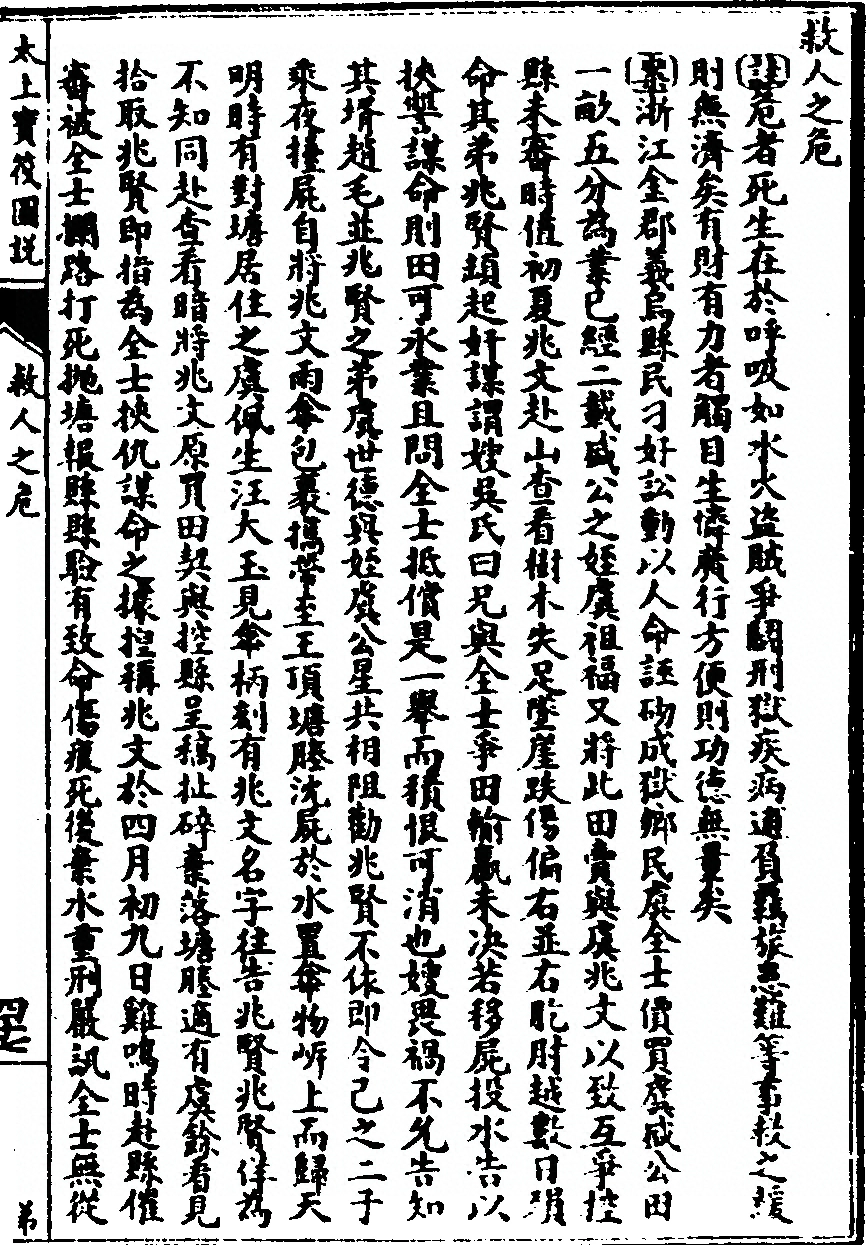 救人之危
〔註〕危者死生在於呼吸如水火盜賊爭鬭刑獄疾病逋負羈旅患難等事救之緩
則無濟矣有財有力者觸目生憐廣行方便則功德無量矣
〔案〕浙江金郡義烏縣民刁好訟動以人命誣砌成獄鄉民虞全士價買虞咸公田
一畝五分為業已經二載咸公之姪虞祖福又將此田賣與虞兆文以致互爭控
縣未審時值初夏兆文赴山查看樹木失足墜崖跌傷偏右並右肐肘越數日殞
命其弟兆賢頓起奸謀謂嫂吳氏曰兄與全士爭田輸贏未决若移屍投水告以
挾讐謀命則田可永業且問全士抵償是一舉而積恨可消也嫂畏禍不允告知
其壻趙毛並兆賢之弟虞世德與姪虞公星共相阻勸兆賢不依即令己之二子
乘夜擡屍自將兆文雨傘包裹攜帶至王頂塘塍沈屍於水置傘物岍上而歸天
明時有對塘居住之虞佩生汪大玉見傘柄刻有兆文名字往告兆賢兆賢佯為
不知同赴查看暗將兆文原買田契與控縣呈稿扯碎棄落塘塍適有虞餘看見
拾取兆賢即指為全士挾仇謀命之據控稱兆文於四月初九日雞鳴時赴縣催
審被全士攔路打死拋塘報縣縣驗有致命傷痕死後棄水重刑嚴訊全士無從
太上寶筏圖説
救人之危
四七
弟